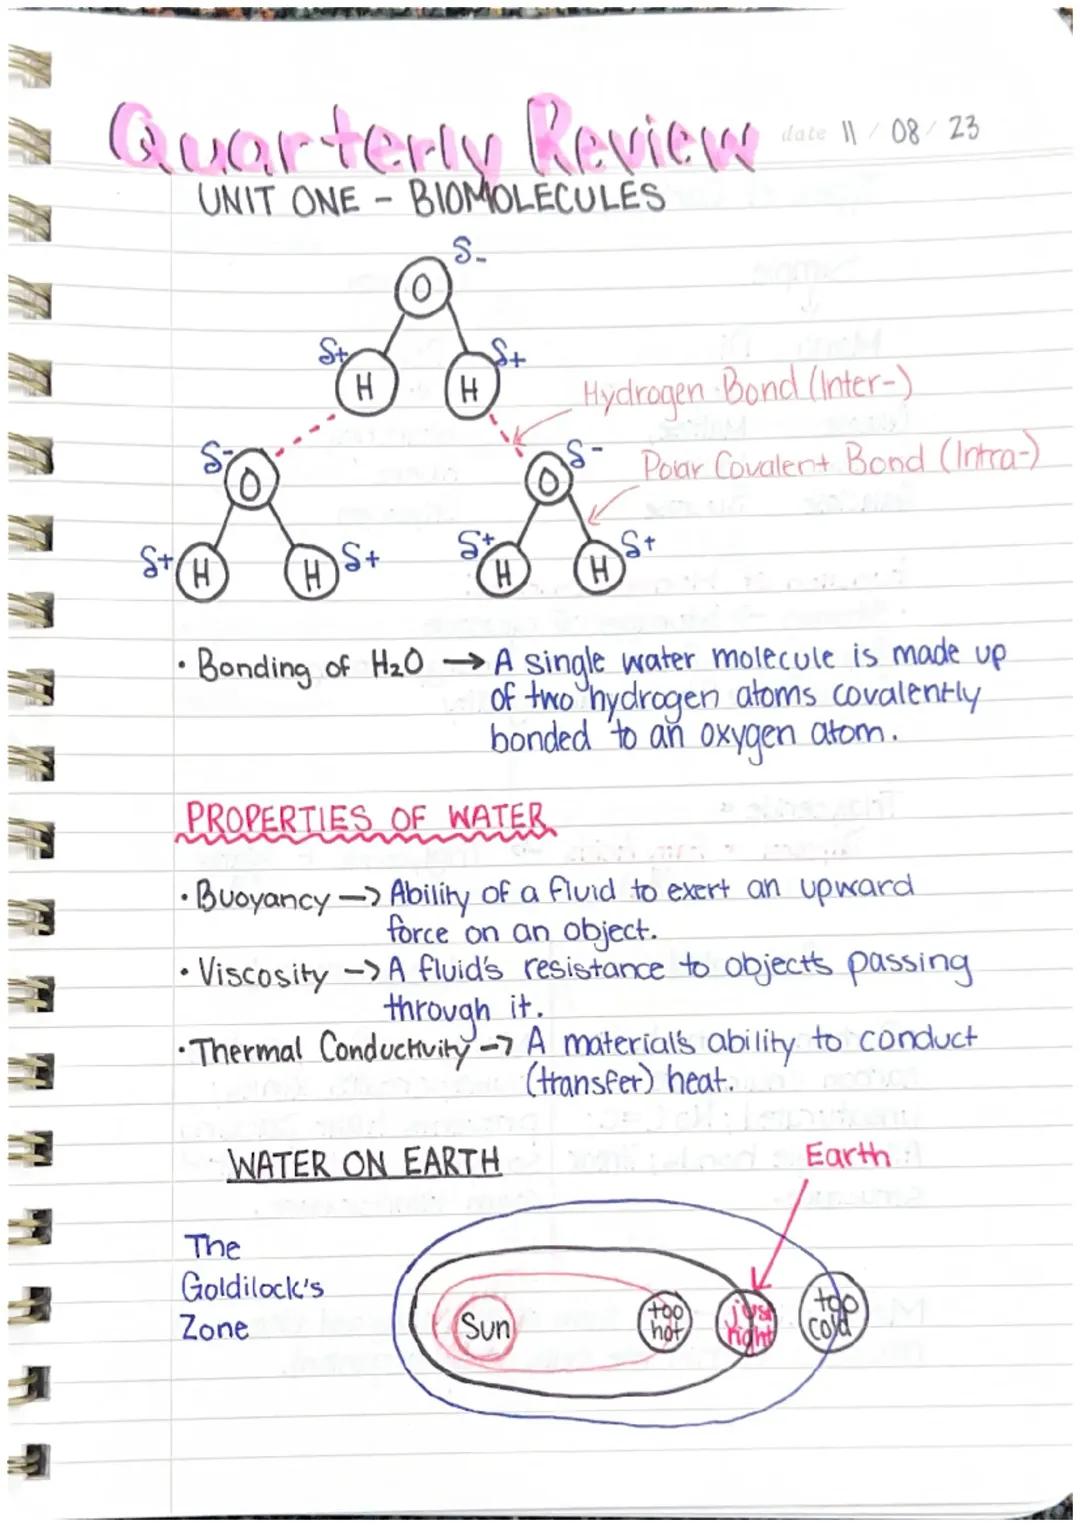 Quarterly Review date 11/08/23
UNIT ONE - BIOMOLECULES
δ-
O
δ+ δ+
H H
Hydrogen Bond (Inter-)
δ- δ-
O O
Polar Covalent Bond (Intra-)
δ+ δ+ δ+ δ+
H H H H
· Bonding of H₂O → A single water molecule is made up
of two hydrogen atoms covalently
bonded to an oxygen atom.
PROPERTIES OF WATER
· Buoyancy → Ability of a fluid to exert an upward
force on an object.
· Viscosity → A fluid's resistance to objects passing
through it.
· Thermal Conductivity → A material's ability to conduct
(transfer) heat.
WATER ON EARTH
Earth
The
Goldilock's
Zone
Sun
too
hot
just
right
too
cold